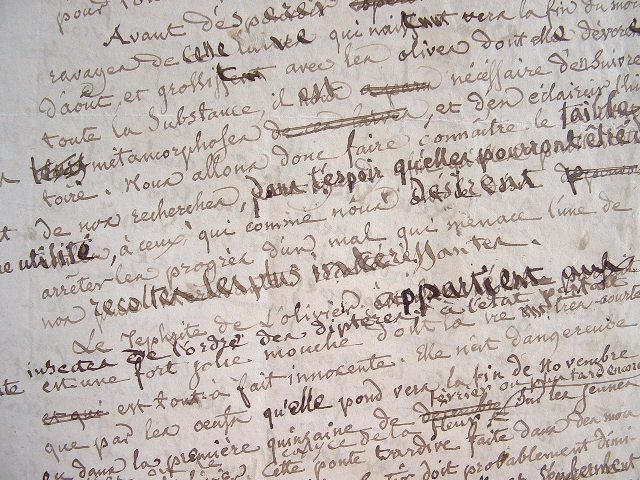 pour
Avant d'espérer
ravages de cette larve qui naissent vers la fin du mois
d'août, et grossissent avec les olives dont elle dévore
toute la Substance, il nous est nécessaire d'en suivre
les métamorphoses et d'en éclaircir l'his
toire. Nous allons donc faire connaître le faible
de nos recherches, dans l'espoir qu'elles pourront être
utilité, à ceux, qui comme nous désirent
arrêter les progrès d'un mal qui menace l'une de
nos recoltes les plus intéressantes.
Le Téphrite de l'olivier appartient aux
insectes de l'ordre des diptères à l'état
est une fort jolie mouche dont la vie courte
et qui est tout à fait innocente. Elle n'est dangereuse
que par les oeufs qu'elle pond vers la fin de Novembre
ou dans la première quinzaine de février ou plus tard encore
calice de la fleur Sur les jeunes
Cette ponte tardive faite dans des mois
doit probablement dimi